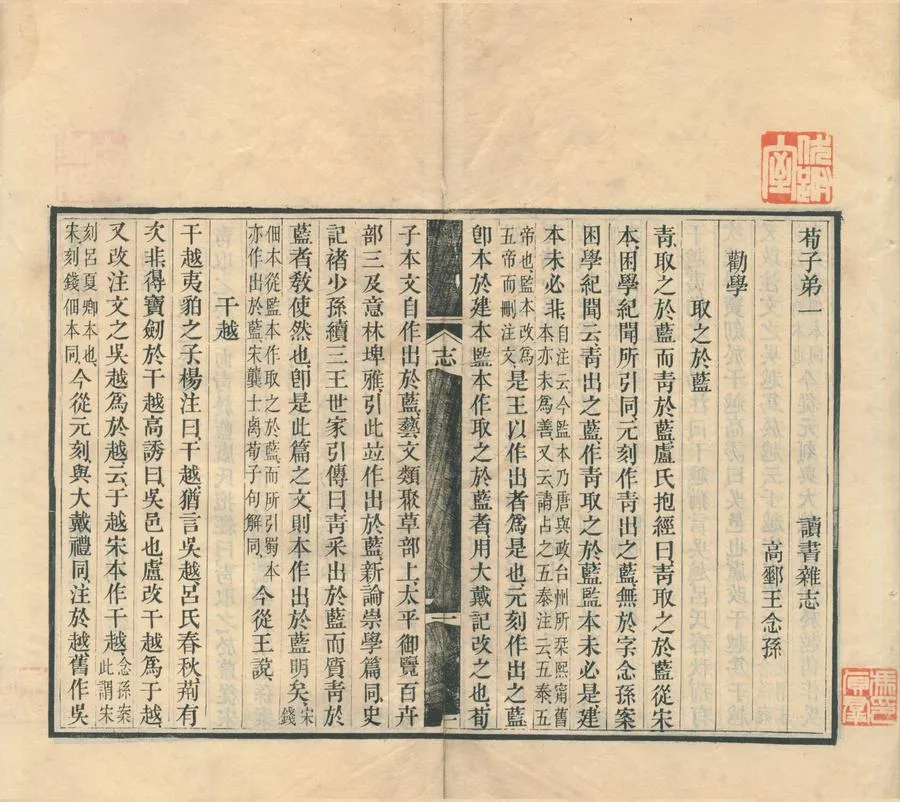 荀子弟一 讀書雜志
高郵王念孫
勸學
取之於藍
青、取之於藍而青於藍、盧氏抱經曰、青取之於藍、從宋
本、困學紀聞所引同、元刻作青出之藍、無於字、念孫案
困學紀聞云、青出之藍、作青取之於藍、監本未必是、建
本未必非、自注云、今監本乃唐與政台州所栞熙甯舊
本、亦未爲善、又云、請占之五泰、注云、五泰五
帝也、監本改爲
五帝、而刪注文、是王以作出者爲是也、元刻作出之藍
卽本於建本、監本作取之於藍者、用大戴記改之也、荀
子本文自作出於藍、藝文類聚草部上、太平御覽百卉
部三、及意林、埤雅、引此竝作出於藍、新論崇學篇同、史
記褚少孫續三王世家引傳曰、青采出於藍、而質青於
藍者、敎使然也、卽是此篇之文、則本作出於藍明矣、宋錢
佃本從監本作取之於藍、而所引蜀本
亦作出於藍、宋龔士卨荀子句解同、今從王說、
干越
干越夷貉之子、楊注曰、干越、猶言吳越、呂氏春秋、荊有
次非得寶劒於干越、高誘曰、吳邑也、盧改干越爲于越、
又改注文之吳越爲於越、云、于越、宋本作干越、念孫案
此謂宋
刻呂夏卿本也、
宋刻錢佃本同、今從元刻、與大戴禮同、注於越、舊作吳
志
一